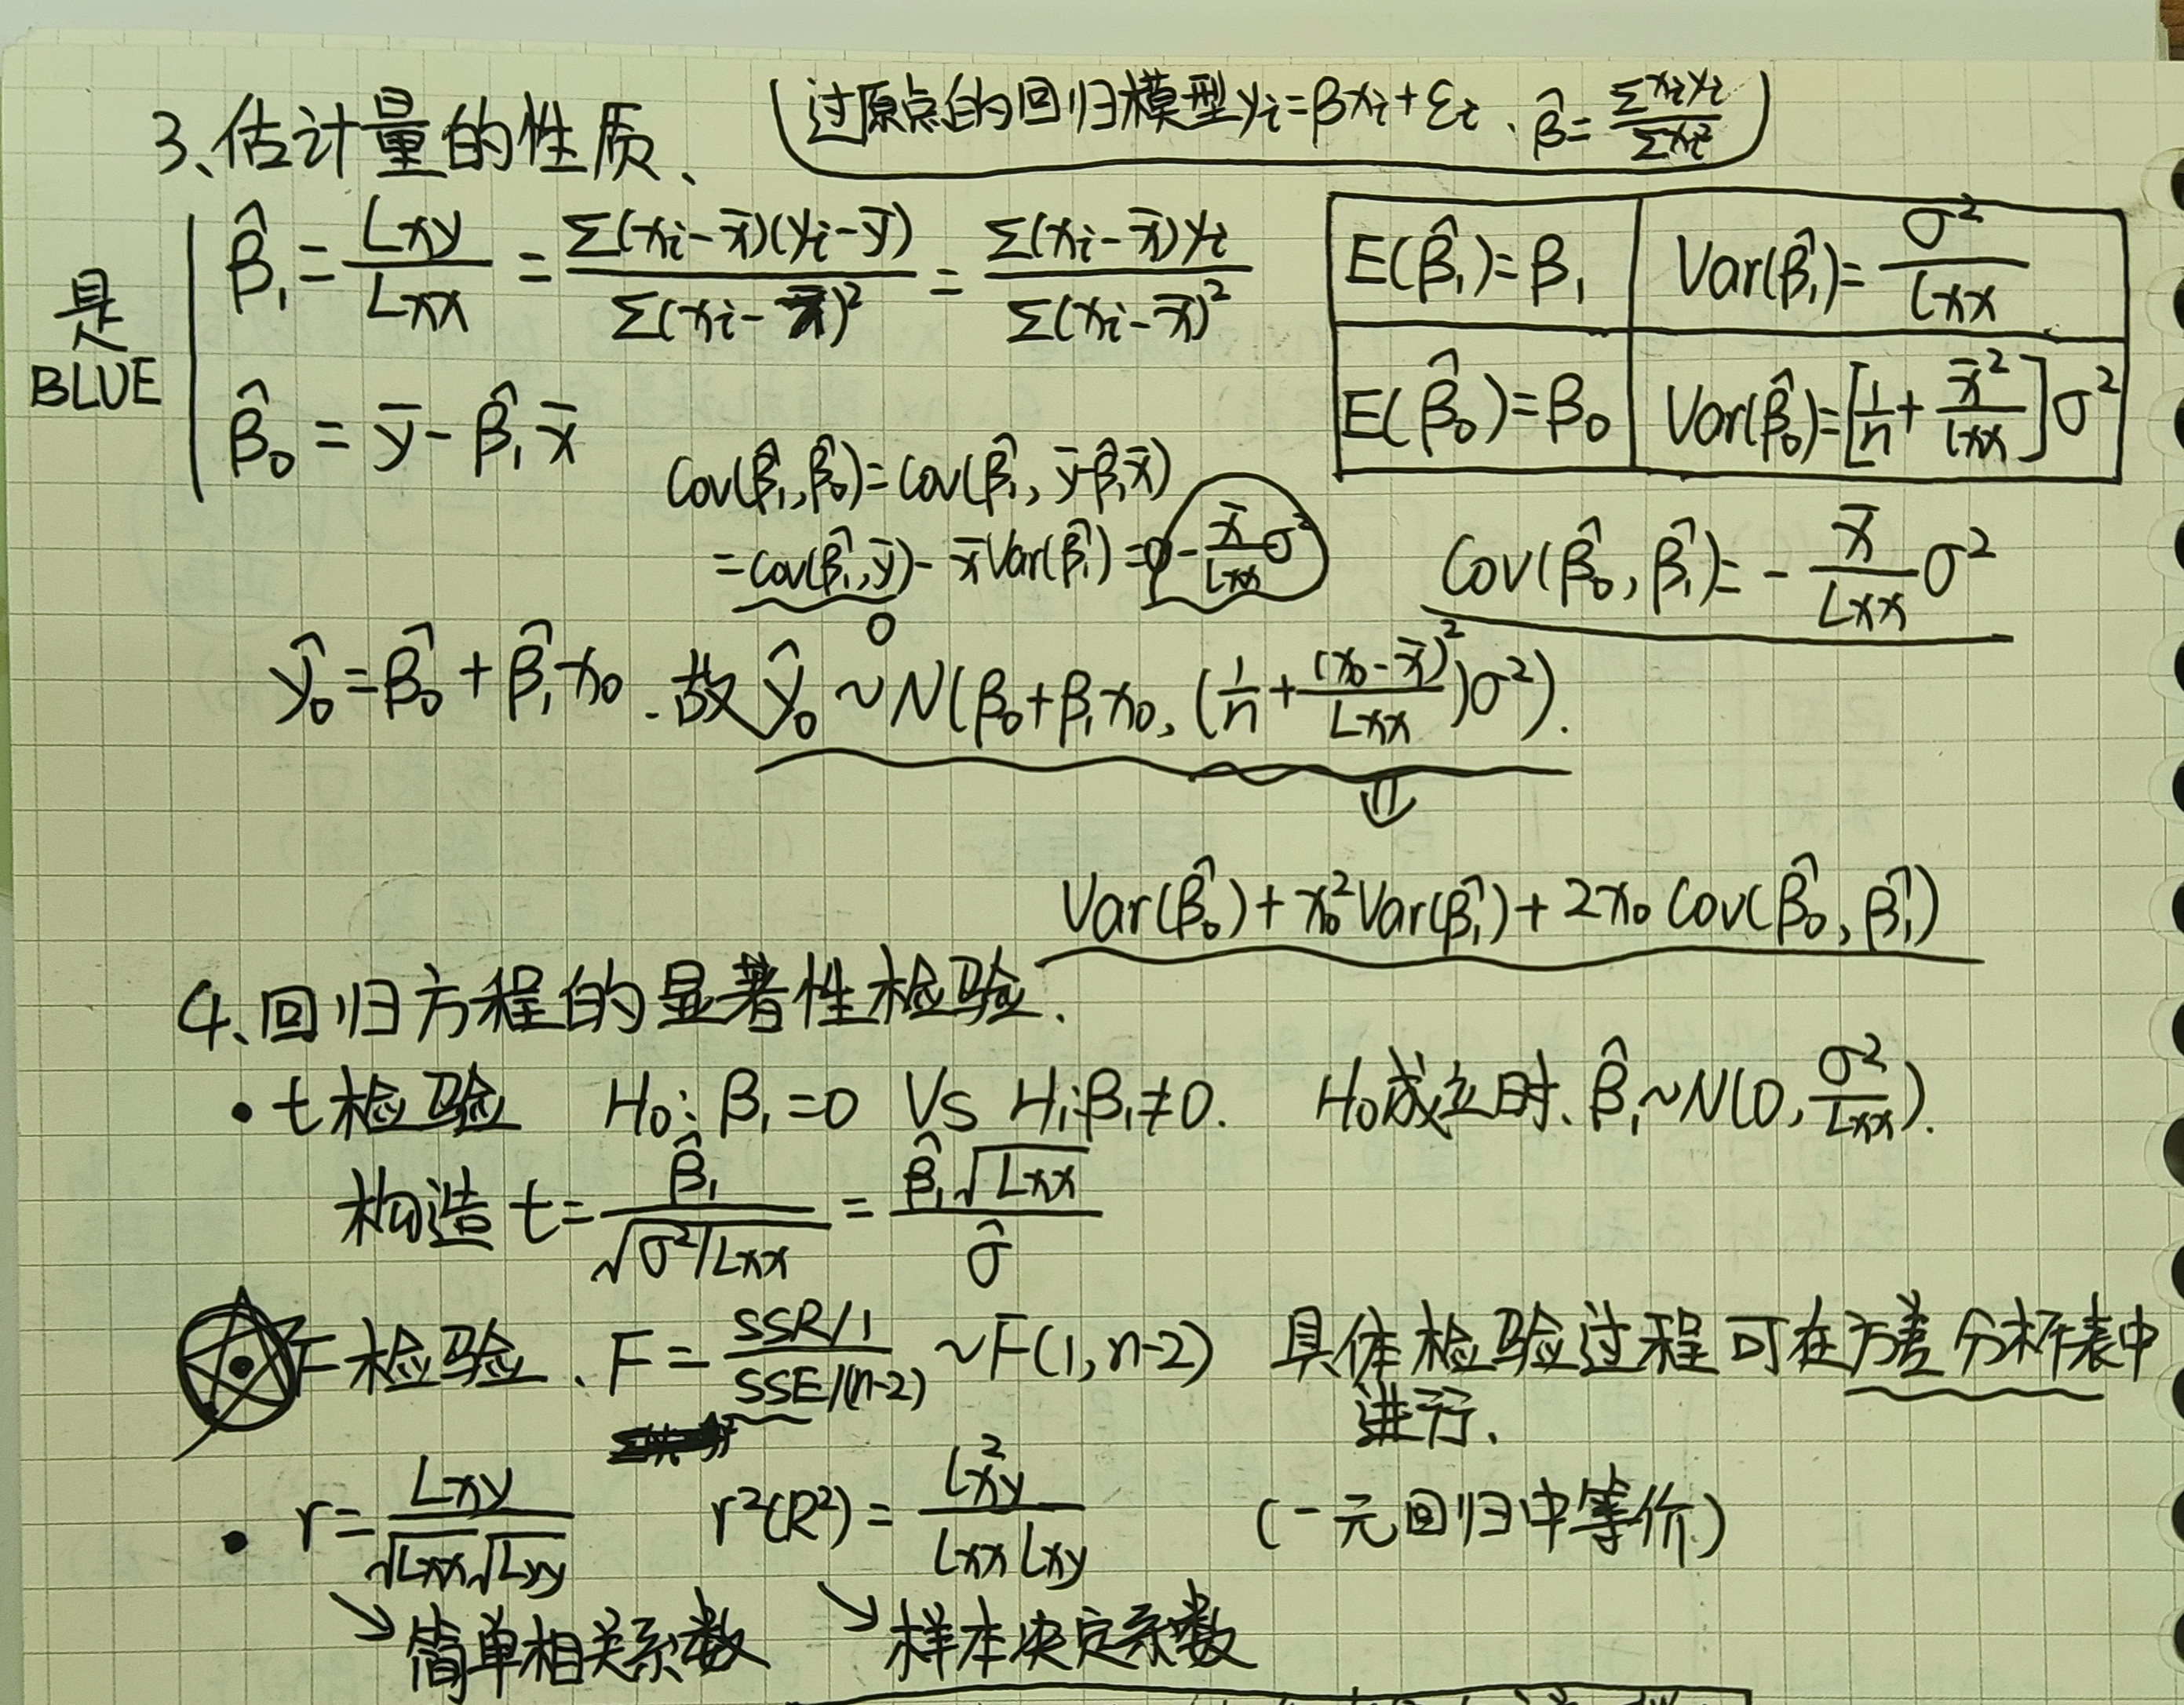 3、估计量的性质、
过原点的回归模型 yᵢ=βxᵢ+εᵢ. β̂=Σxᵢyᵢ/Σxᵢ²
是
BLUE
β̂₁ = Lxy/Lxx = Σ(xᵢ-x̄)(yᵢ-ȳ)/Σ(xᵢ-x̄)² = Σ(xᵢ-x̄)yᵢ/Σ(xᵢ-x̄)²
E(β̂₁)=β₁ Var(β̂₁)=σ²/Lxx
β̂₀ = ȳ-β̂₁x̄
E(β̂₀)=β₀ Var(β̂₀)=[1/n+x̄²/Lxx]σ²
Cov(β̂₁,β̂₀)=Cov(β̂₁,ȳ-β̂₁x̄)
=Cov(β̂₁,ȳ)-x̄Var(β̂₁)=0-x̄/Lxx σ²
0
Cov(β̂₀,β̂₁)=-x̄/Lxx σ²
ŷ₀=β̂₀+β̂₁x₀.故ŷ₀~N(β₀+β₁x₀,(1/n+(x₀-x̄)²/Lxx)σ²).
⇓
Var(β̂₀)+x₀²Var(β̂₁)+2x₀Cov(β̂₀,β̂₁)
4、回归方程的显著性检验.
•t检验 H₀:β₁=0 VS H₁:β₁≠0. H₀成立时、β̂₁~N(0,σ²/Lxx).
构造 t=β̂₁/√(σ²/Lxx)=β̂₁√Lxx/σ̂
•F检验、F=(SSR/1)/(SSE/(n-2)) ~F(1,n-2) 具体检验过程可在方差分析表中
进行.
• r=Lxy/(√Lxx√Lyy) r²(R²)=L²xy/(Lxx Lxy) (一元回归中等价)
↘简单相关系数 ↘样本决定系数